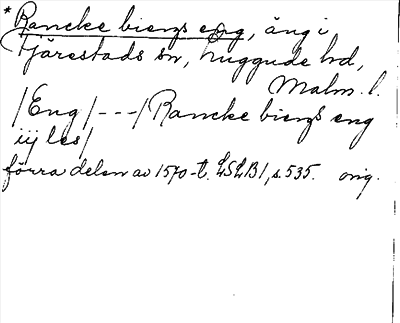 * Rancke biergs eng, äng i
Tjärestads sn, Luggude hd,
Malm. l.
/Eng/---/Rancke biergs eng
iij les/
förra delen av 1570-t. LSLB1, s. 535. orig.